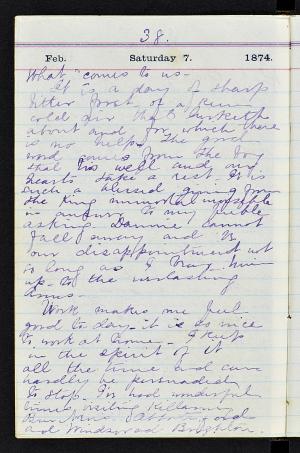 38.
Feb. Saturday 7. 1874.
What comes to us -
It is a day of sharp
bitter frost, of a keen
cold air that
about and for which there
is no help. The good
word comes from the boy
that is well and our
hearts take rest. It is
such a blessed giving from
the King immortal invisible
in answer to my feeble
asking. Dannie cannot
fall away and
our disappointment not
so long as I Pray him
up to the everlasting
Arms.
Work makes me feel
good to day - it is so nice
to work at home - I keep
in the spirit of it
all the time and can
hardly be persuaded
to stop. I've had wonderful
times writing Killarney
and Windsor and Brighton.